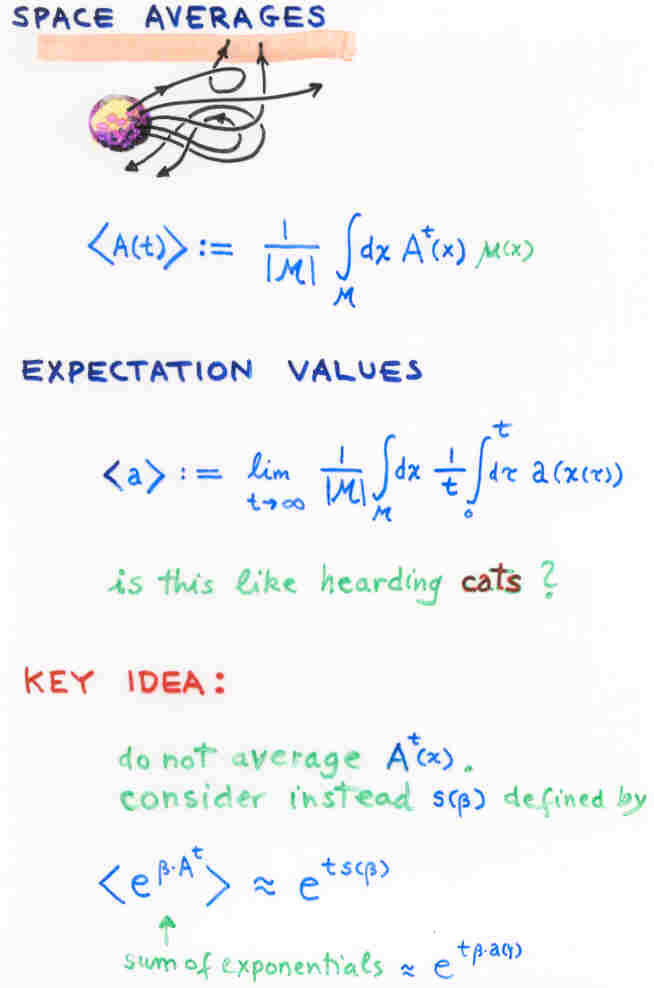 SPACE AVERAGES
⟨A(t)⟩ := 1/|M| ∫_M dx A^t(x) μ(x)
EXPECTATION VALUES
⟨a⟩ := lim_{t→∞} 1/|M| ∫_M dx 1/t ∫_0^t dτ a(x(τ))
is this like hearding cats ?
KEY IDEA:
do not average A^t(x).
consider instead s(β) defined by
⟨e^{β·A^t}⟩ ≈ e^{t s(β)}
↑
sum of exponentials ≈ e^{t β·a(γ)}